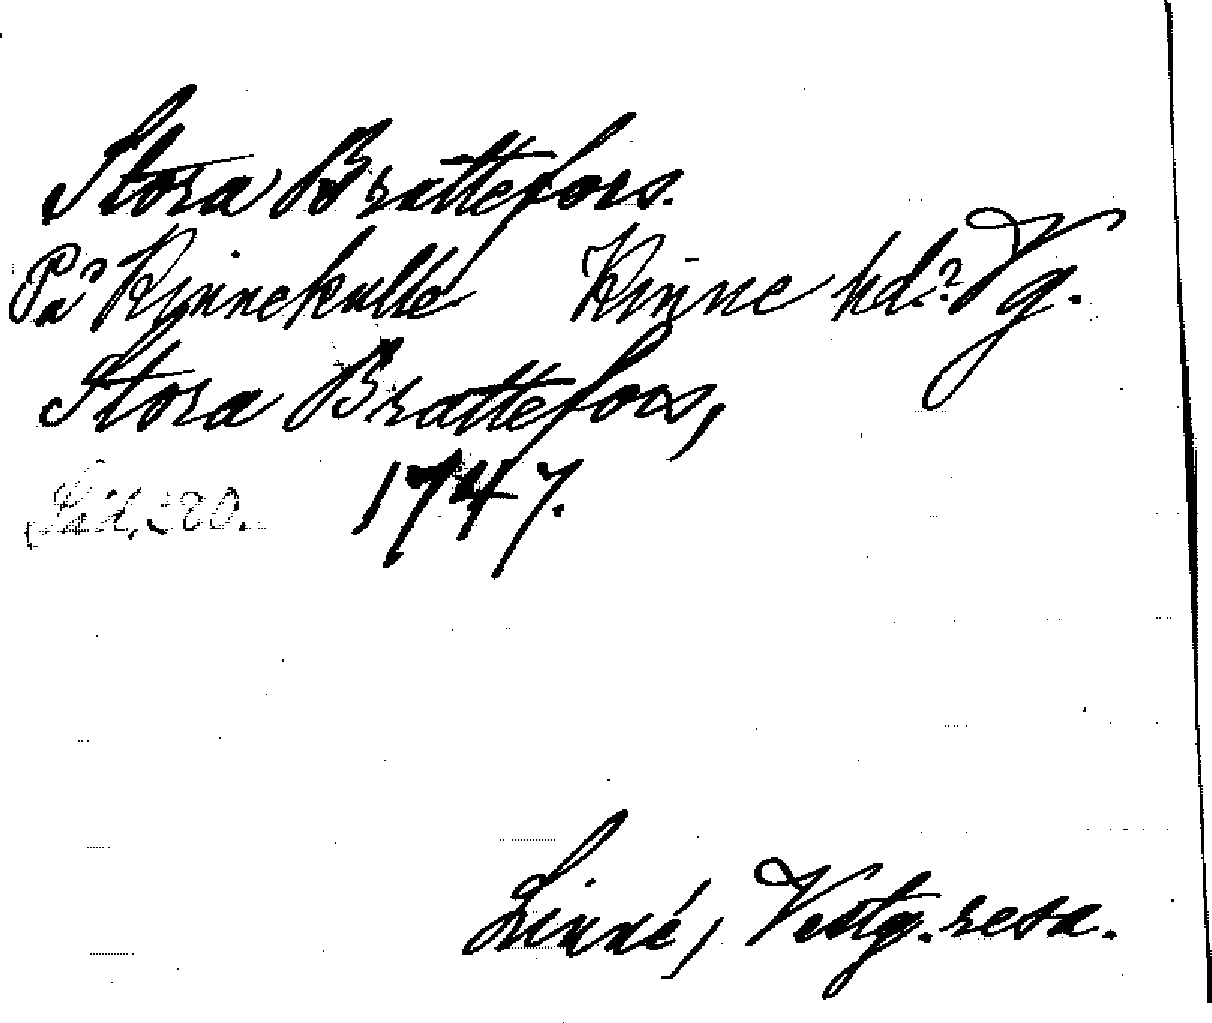 Stora Brattefors.
På Kinnekulle Kinne hd.? Vg.
Stora Brattefors,
1747.
Linné, Vestg. resa.